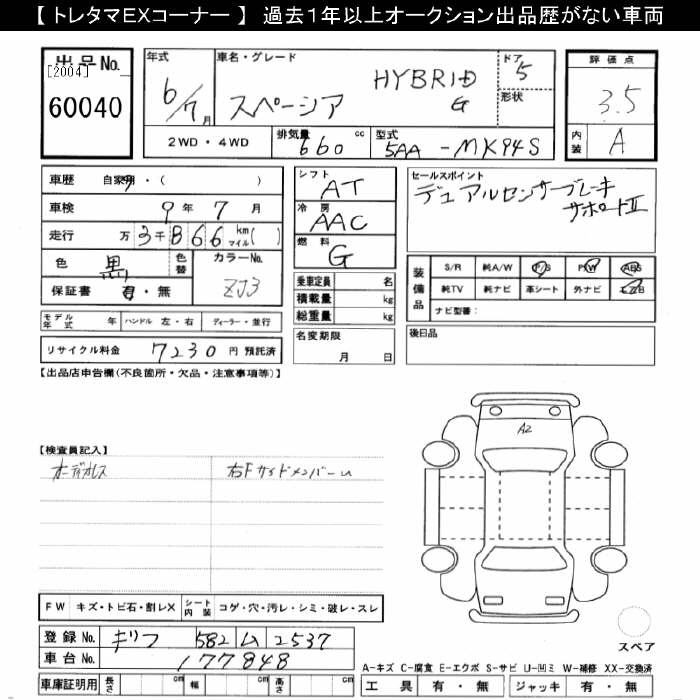 【 トレタマEXコーナー 】 過去1年以上オークション出品歴がない車両
出品No. [2004] 60040
年式 6/7月
車名・グレード スペーシア HYBRID G
ドア 5
形状
評価点 3.5
内装 A
2WD・4WD
排気量 660 cc
型式 5AA-MK94S
車歴 自家用・( )
車検 9年 7月
走行 万 3千866 km マイル( )
色 黒
色替
カラーNo. ZJ3
保証書 有・無
シフト AT
冷房 AAC
燃料 G
乗車定員 名
積載量 kg
総重量 kg
セールスポイント
デュアルセンサーブレーキ
サポートII
装備品 S/R 純A/W P/S P/W ABS
純TV 純ナビ 革シート 外ナビ エアB
ナビ型番:
モデル年式 年 ハンドル 左・右 ディーラー・並行
名変期限 月 日
後日品
リサイクル料金 7230 円 預託済
【出品店申告欄(不良箇所・欠品・注意事項等)】
A2
【検査員記入】
オーディオレス
右Fサイドメンバーム
FW キズ・トビ石・割レX
シート内装 コゲ・穴・汚レ・シミ・破レ・スレ
登録No. ギフ 582 ム 2537
車台No. 177848
スペア
A-キズ C-腐食 E-エクボ S-サビ U-凹ミ W-補修 XX-交換済
車庫証明用 長さ cm 幅 cm 高さ cm
工具 有・無 ジャッキ 有・無